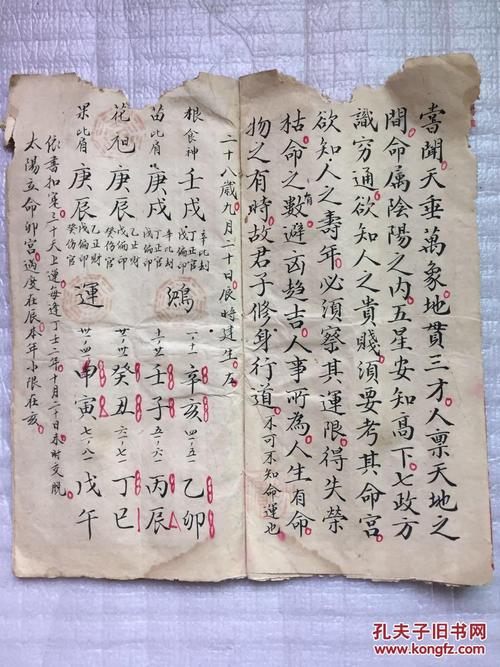 嘗聞天垂萬象地貫三才人禀天地之
間命屬陰陽之内五星安知高下七政方
識窮通欲知人之貴賤須要考其命宮
欲知人之壽年必須察其運限得失榮
枯命之有數避凶趋吉人事所為人生有命
物之有時故君子修身行道不可不知命運也
二十八歲九月二十日辰時建生
根食神 壬戌 辛比刦 丁正官 戊偏印
苗比肩 庚戌 辛比刦 丁正官 戊偏印
花 旭 庚辰 乙正財 戊偏印 癸伤官
果比肩 庚辰 乙正財 戊偏印 癸伤官
鴻
運
辛亥
乙卯
壬子
丙辰
癸丑
丁巳
甲寅
戊午
依書扣算三十天上運每逢丁壬二年十月二十日未时交脱
太陽立命卯宮過度在辰本年小限在亥
孔夫子旧书网
www.kongfz.com